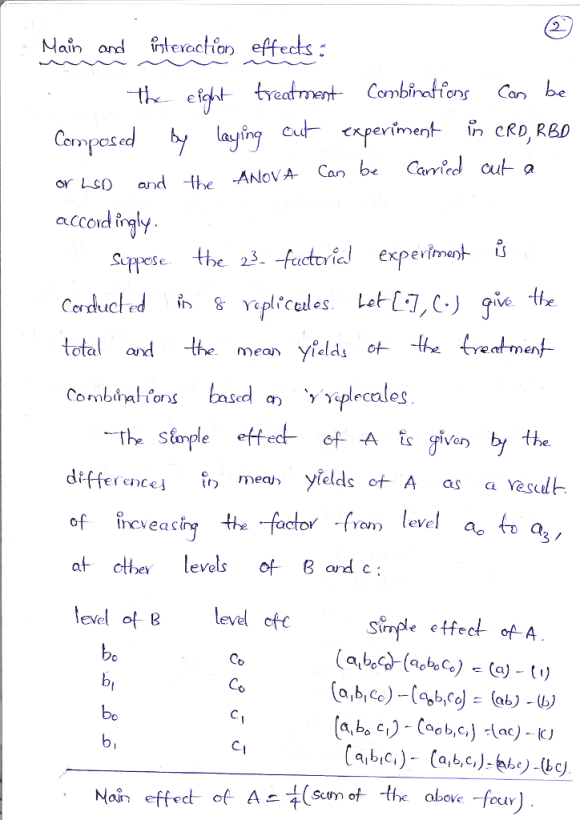 2
Main and interaction effects :
The eight treatment Combinations Can be
Composed by laying out experiment in CRD, RBD
or LSD and the ANOVA Can be Carried out a
accordingly.
Suppose the 2³- factorial experiment is
Conducted in 8 replicates. Let [·], (·) give the
total and the mean yields of the treatment
Combinations based on 'r replecates.
The simple effect of A is given by the
differences in mean yields of A as a result
of increasing the factor from level a₀ to a₃,
at other levels of B and c :
level of B level of C Simple effect of A.
b₀ C₀ (a₁b₀c₀)-(a₀b₀c₀) = (a) - (1)
b₁ C₀ (a₁b₁c₀) - (a₀b₁c₀) = (ab) - (b)
b₀ C₁ (a₁b₀c₁) - (a₀b₁c₁) = (ac) - (c)
b₁ C₁ (a₁b₁c₁) - (a₁b₁c₁) = (abc) - (bc).
Main effect of A = ¼ (sum of the above four).